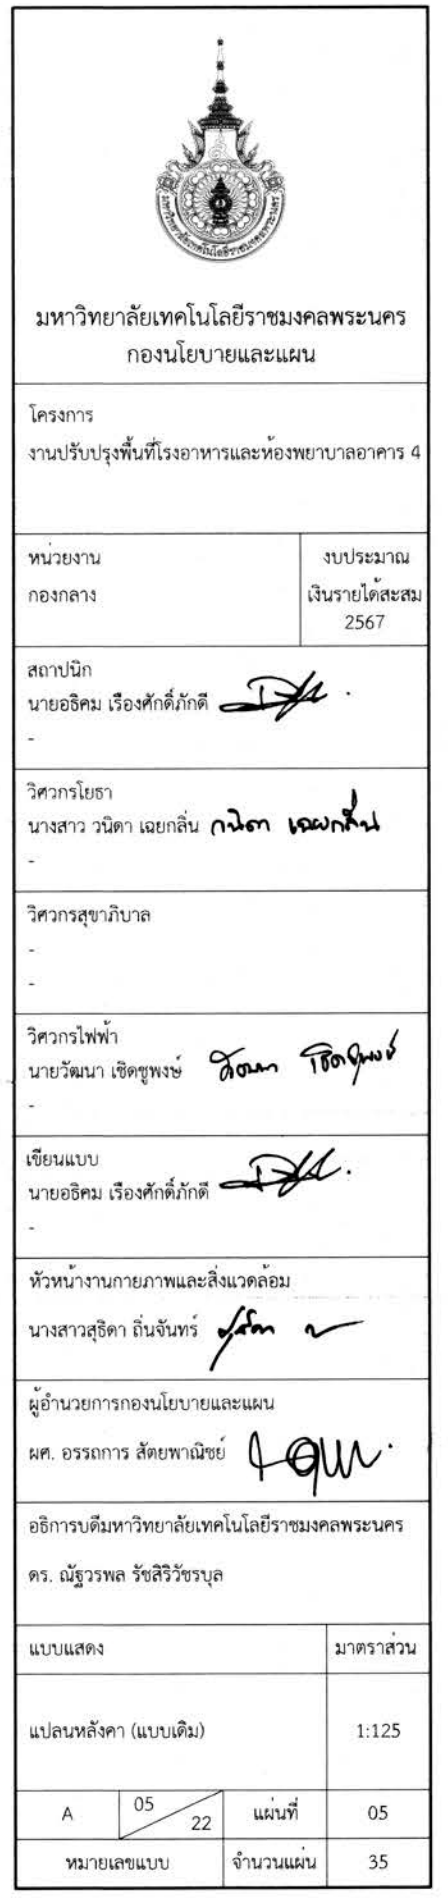 มหาวิทยาลัยเทคโนโลยีราชมงคลพระนคร
มหาวิทยาลัยเทคโนโลยีราชมงคลพระนคร
กองนโยบายและแผน
โครงการ
งานปรับปรุงพื้นที่โรงอาหารและห้องพยาบาลอาคาร 4
หน่วยงาน
กองกลาง
งบประมาณ
เงินรายได้สะสม
2567
สถาปนิก
นายอธิคม เรืองศักดิ์ภักดี
-
วิศวกรโยธา
นางสาว วนิดา เฉยกลิ่น วนิดา เฉยกลิ่น
-
วิศวกรสุขาภิบาล
-
-
วิศวกรไฟฟ้า
นายวัฒนา เชิดชูพงษ์ วัฒนา เชิดชูพงษ์
-
เขียนแบบ
นายอธิคม เรืองศักดิ์ภักดี
-
หัวหน้างานกายภาพและสิ่งแวดล้อม
นางสาวสุธิดา ถิ่นจันทร์
ผู้อำนวยการกองนโยบายและแผน
ผศ. อรรถการ สัตยพาณิชย์
อธิการบดีมหาวิทยาลัยเทคโนโลยีราชมงคลพระนคร
ดร. ณัฐวรพล รัชสิริวัชรบุล
แบบแสดง
มาตราส่วน
แปลนหลังคา (แบบเดิม)
1:125
A
05
22
แผ่นที่
05
หมายเลขแบบ
จำนวนแผ่น
35